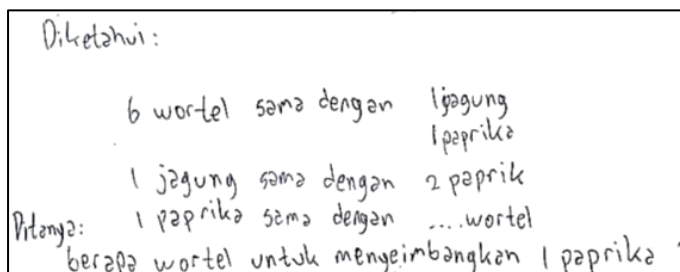 Diketahui:
6 wortel sama dengan 1 jagung
1 paprika
1 jagung sama dengan 2 paprik
Ditanya: 1 paprika sama dengan ....wortel
berapa wortel untuk mengeimbangkan 1 paprika ?